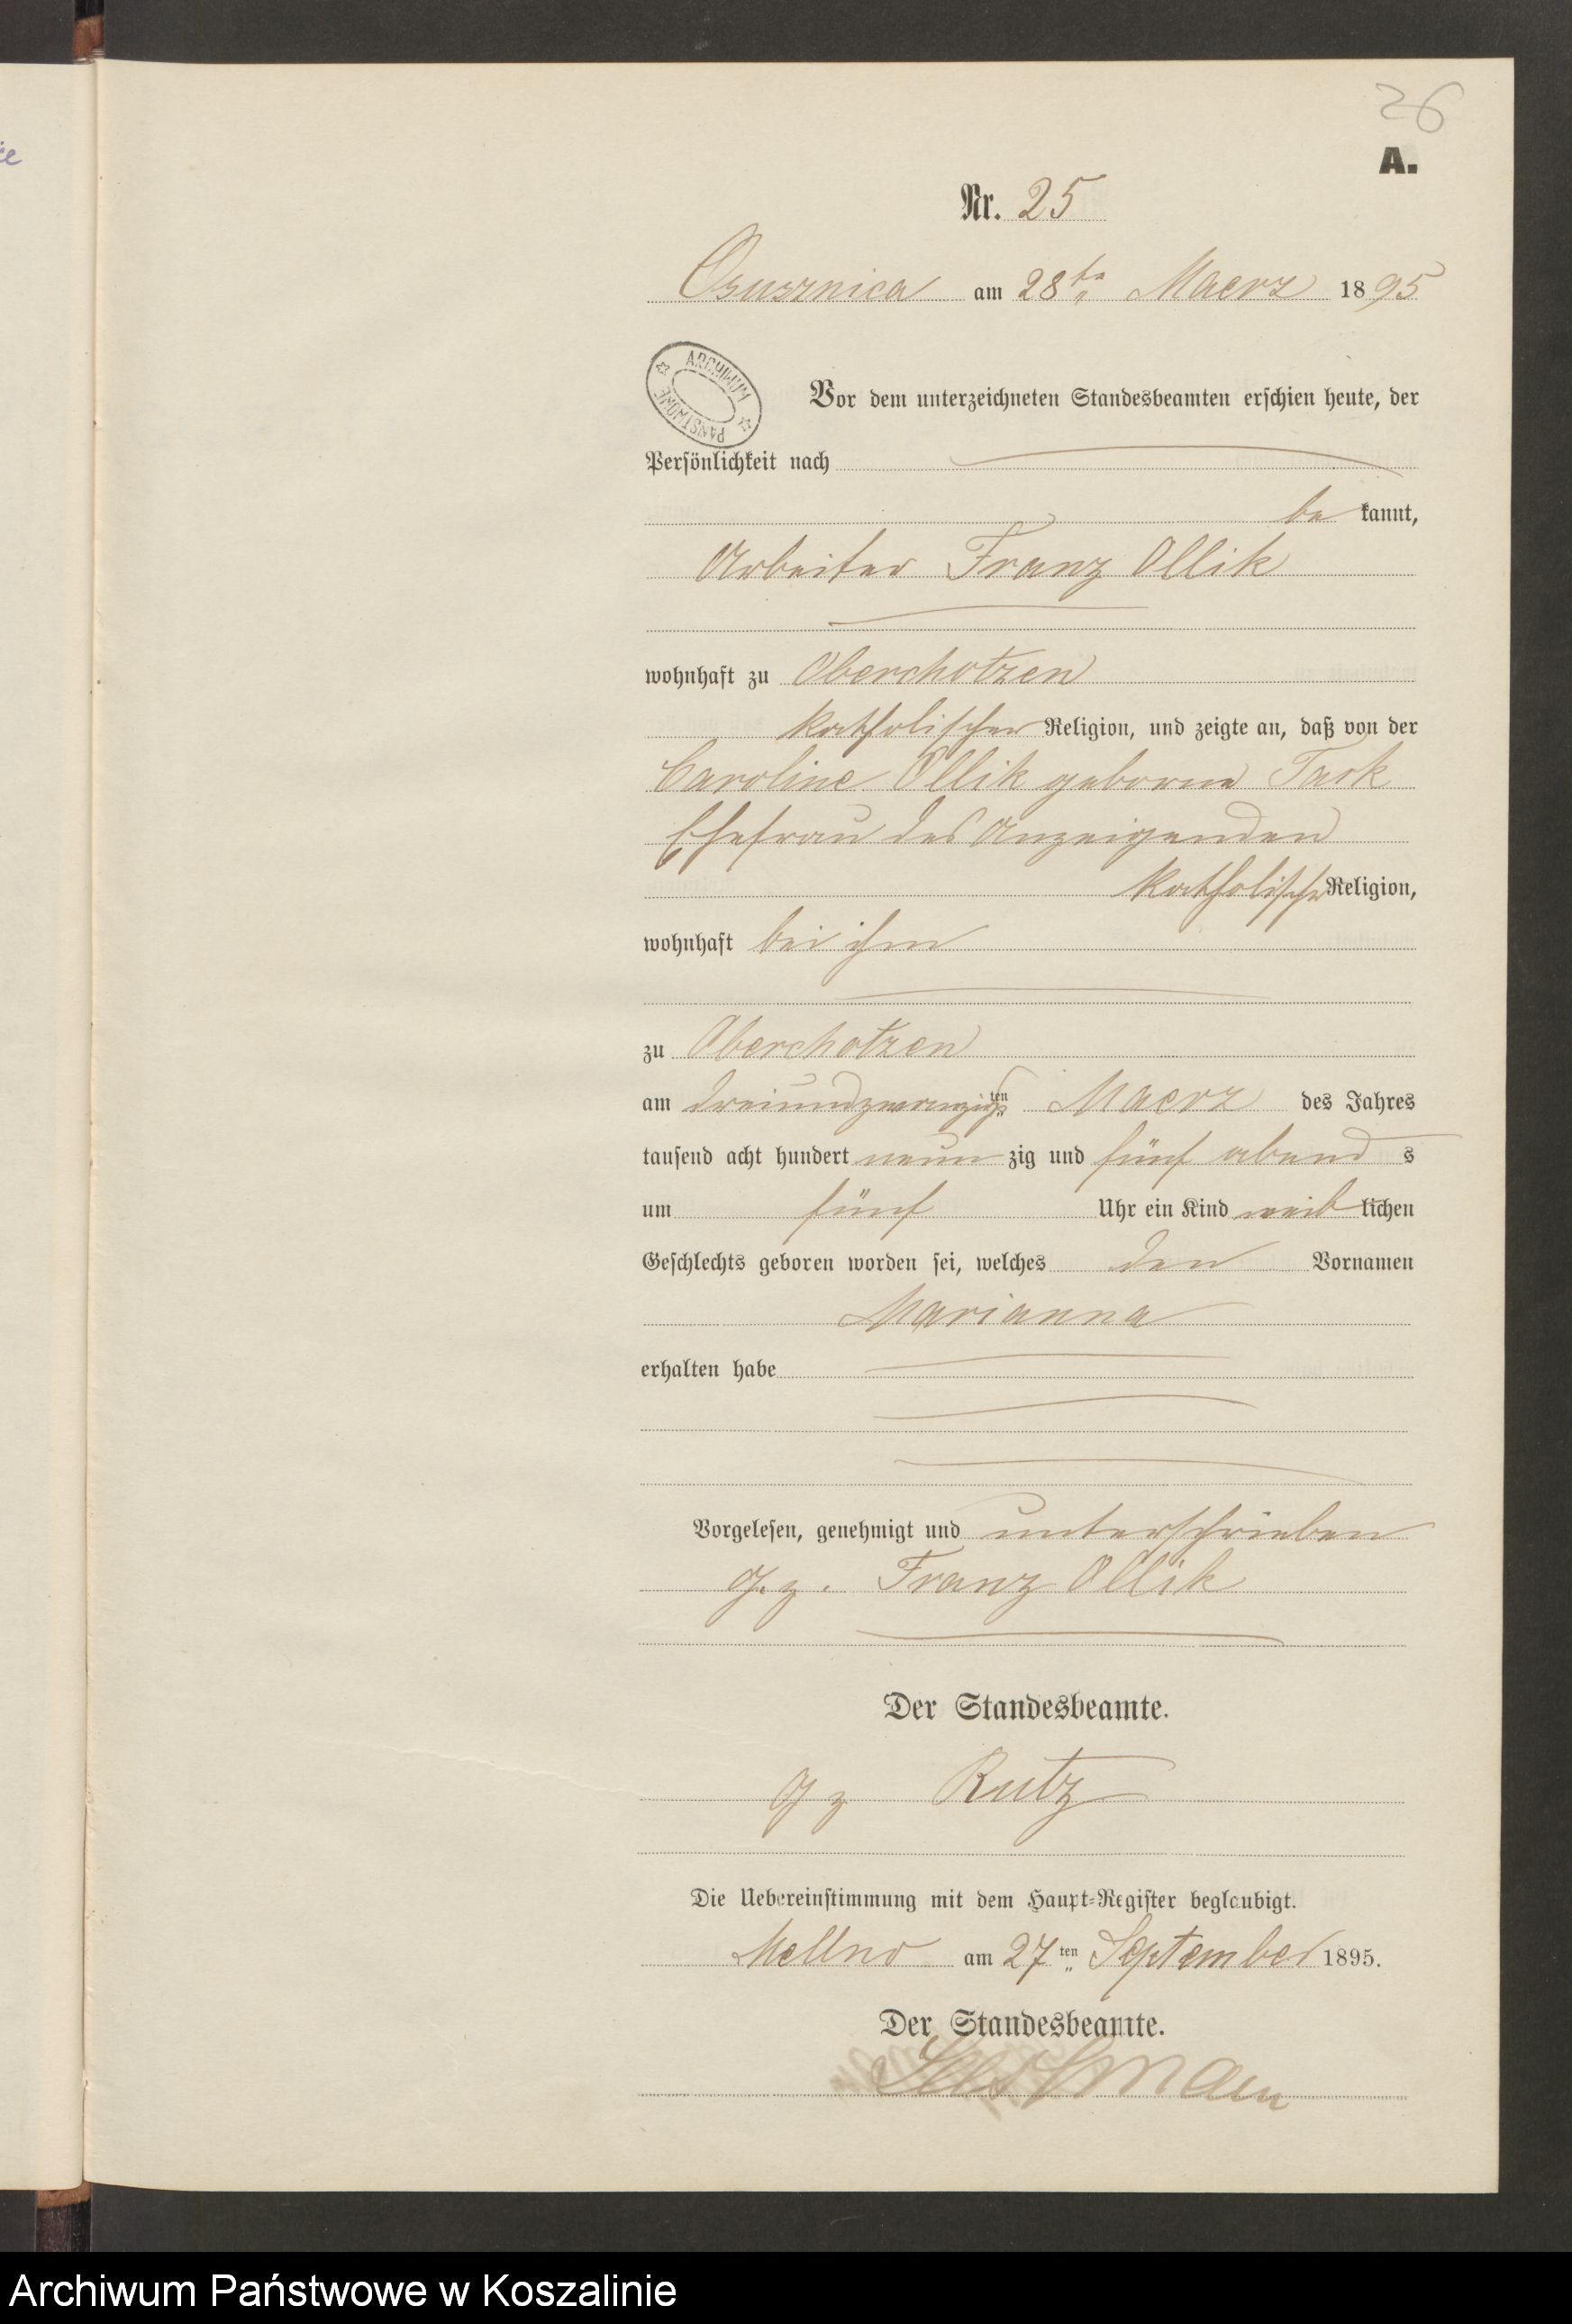 26
A.
Nr. 25
Osusznica am 28ten Maerz 1895
ARCHIWUM PAŃSTWOWE
Vor dem unterzeichneten Standesbeamten erschien heute, der
Persönlichkeit nach
be kannt,
Arbeiter Franz Ollik
wohnhaft zu Oberchotzen
katholischer Religion, und zeigte an, daß von der
Caroline Ollik geborene
Ehefrau des Anzeigenden
katholischer Religion,
wohnhaft bei ihm
zu Oberchotzen
am dreiundzwanzigsten Maerz des Jahres
tausend acht hundert neun zig und fünf abend s
um fünf Uhr ein Kind weib lichen
Geschlechts geboren worden sei, welches den Vornamen
Marianna
erhalten habe
Vorgelesen, genehmigt und unterschrieben
gz. Franz Ollik
Der Standesbeamte.
gz Rutz
Die Uebereinstimmung mit dem Haupt-Register beglaubigt.
Mellno am 27ten September 1895.
Der Standesbeamte.
Archiwum Państwowe w Koszalinie